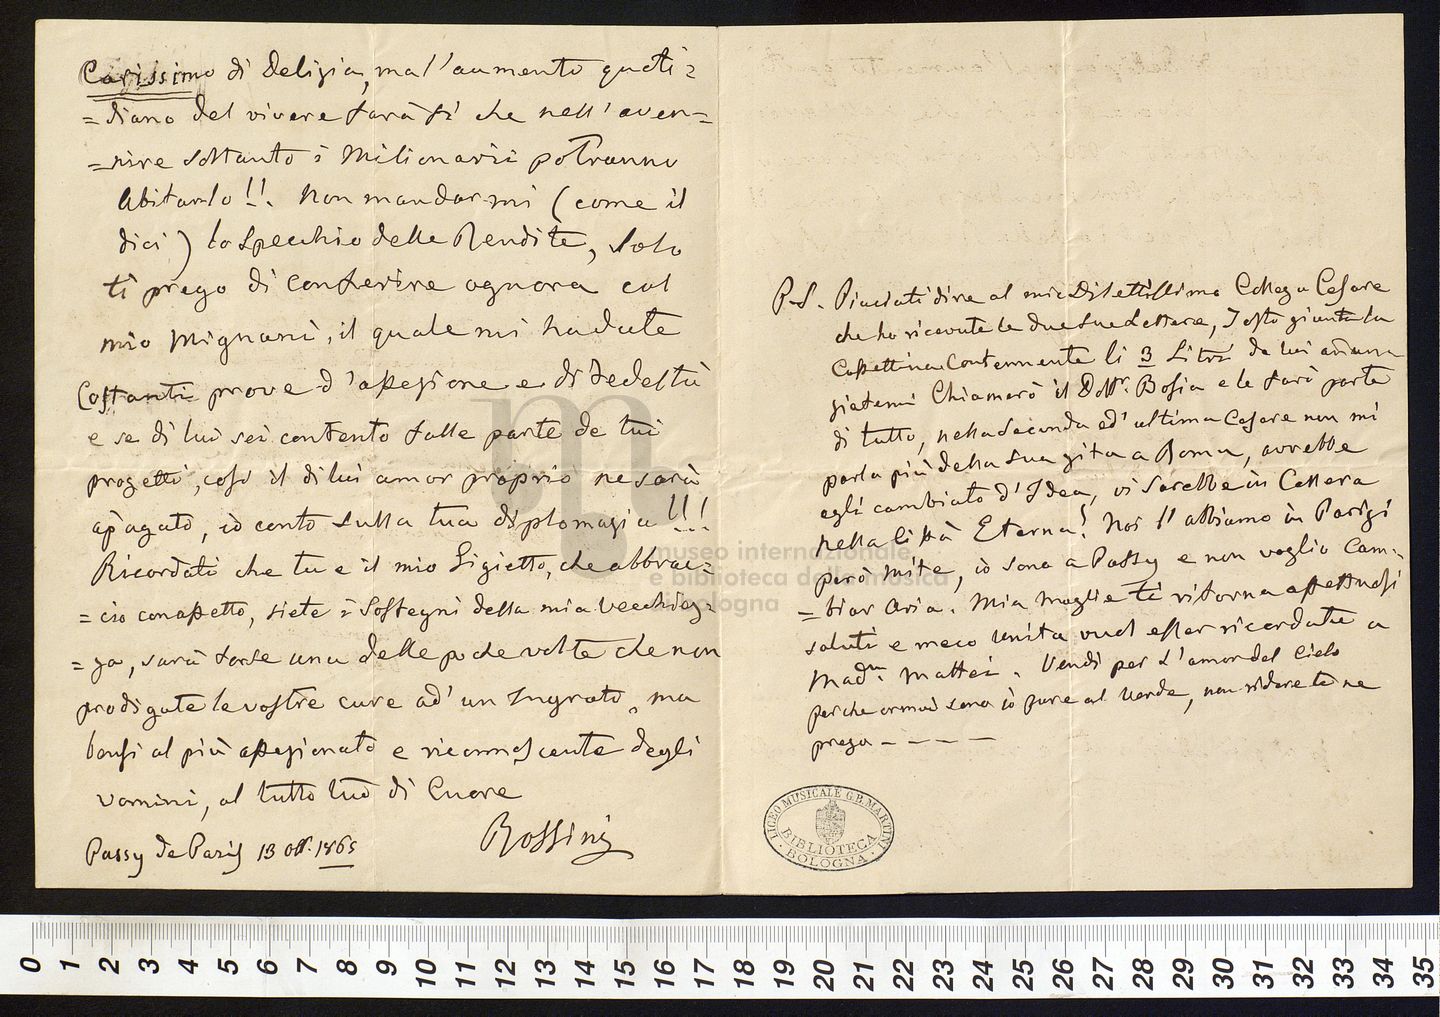 Carissimo di Delizia, ma l'aumento quoti=
=diano del vivere farà sì che nell'aven=
=nire soltanto i Milionarii potranno
abitarlo!!. Non mandarmi (come il
dici) lo specchio delle Rendite, solo
ti prego di conferire ognora col
mio Mignani, il quale mi ha date
Costanti prove d'affezione e di fedeltà
e se di lui sei contento falle parte de tui
progetti, così il di lui amor proprio ne sarà
apagato, io conto sulla tua diplomazia!!!
Ricordati che tu e il mio Gigietto, che abbrac=
=cio con affetto, siete i sostegni della mia vecchiez=
=za, sarà forse una delle poche volte che non
prodigate le vostre cure ad'un Ingrato, ma
bensì al più affezionato e riconoscente degli
uomini, al tutto tuo di Cuore
Rossini
Passy de Paris 13 Ott. 1865
P.S. Piaciati dire al mio Dilettissimo Collega Cesare
che ho ricevute le due sue Lettere, Tosto giunta la
Cassettina Contennente li 3 Libri da lui annun=
ziatemi Chiamerò il Dott.r Bosia e le farò parte
di tutto, nella seconda ed'ultima Cesare non mi
parla più della sua gita a Roma, avrebbe
egli cambiato d'Idea, vi sarebbe in Collera
nella Città Eterna! Noi l'abbiamo in Parigi
però mite, io sono a Passy e non voglio Cam=
=biar Aria. Mia moglie ti ritorna affettuosi
saluti e meco unita vuol esser ricordata a
Mad.a Mattei. Vendi per l'amor del Cielo
perche ormai sono io pure al verde, non ridere te ne
prego - - - -
LICEO MUSICALE G.B. MARTINI
BIBLIOTECA
BOLOGNA
museo internazionale
e biblioteca della musica
bologna
0 1 2 3 4 5 6 7 8 9 10 11 12 13 14 15 16 17 18 19 20 21 22 23 24 25 26 27 28 29 30 31 32 33 34 35